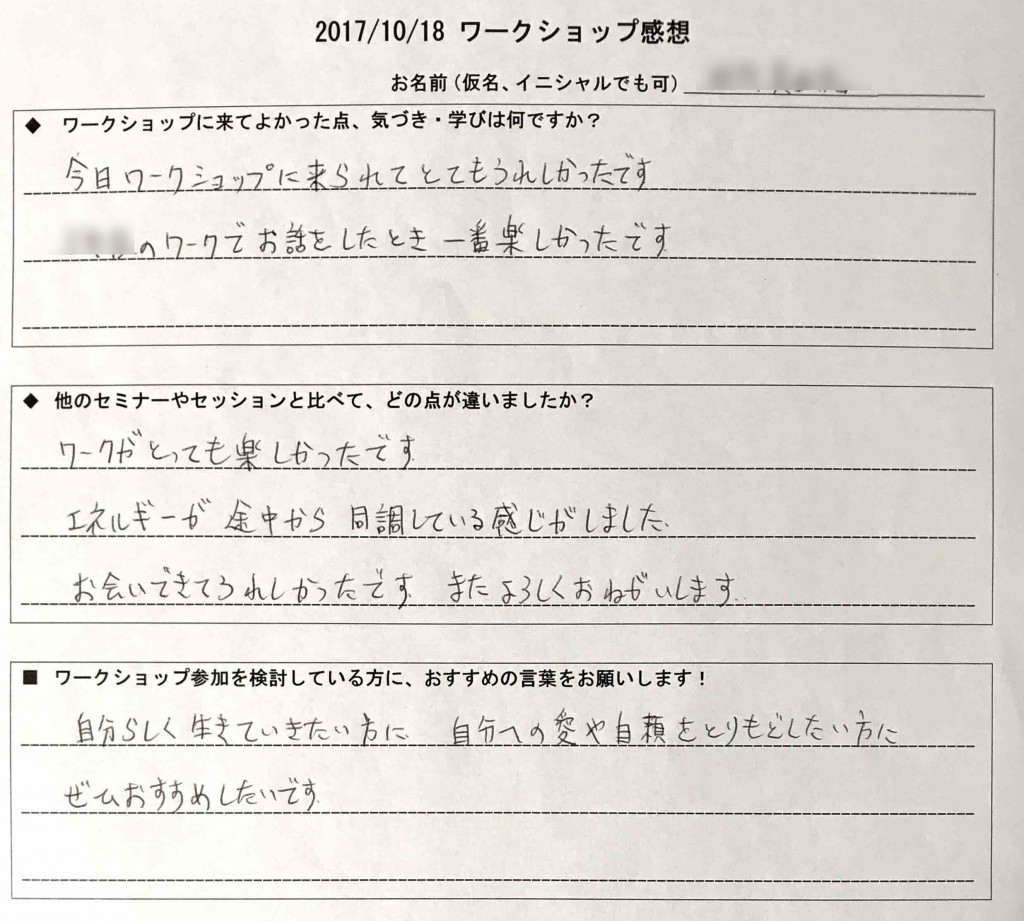 2017/10/18 ワークショップ感想
お名前(仮名、イニシャルでも可)
◆ ワークショップに来てよかった点、気づき・学びは何ですか?
今日ワークショップに来られてとてもうれしかったです
のワークでお話をしたとき 一番楽しかったです
◆ 他のセミナーやセッションと比べて、どの点が違いましたか?
ワークがとっても楽しかったです
エネルギーが 途中から 同調している感じがしました
お会いできてうれしかったです またよろしくおねがいします
■ ワークショップ参加を検討している方に、おすすめの言葉をお願いします!
自分らしく生きていきたい方に 自分への愛や自頼をとりもどしたい方に
ぜひおすすめしたいです